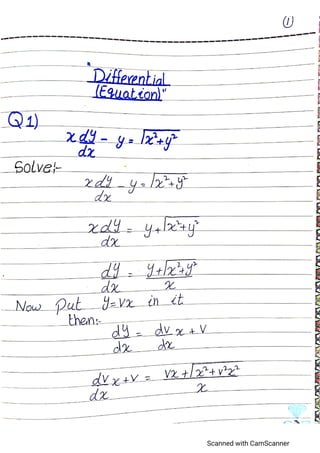 (1)
"Differential
(Equation)"
Q1)
x dy/dx - y = √x²+y²
Solve:-
x dy/dx - y = √x²+y²
x dy/dx = y+√x²+y²
dy/dx = y+√x²+y² / x
Now Put y=vx in it
then:-
dy/dx = dv/dx x + v
dv/dx x + v = vx+√x²+v²x² / x
Scanned with CamScanner